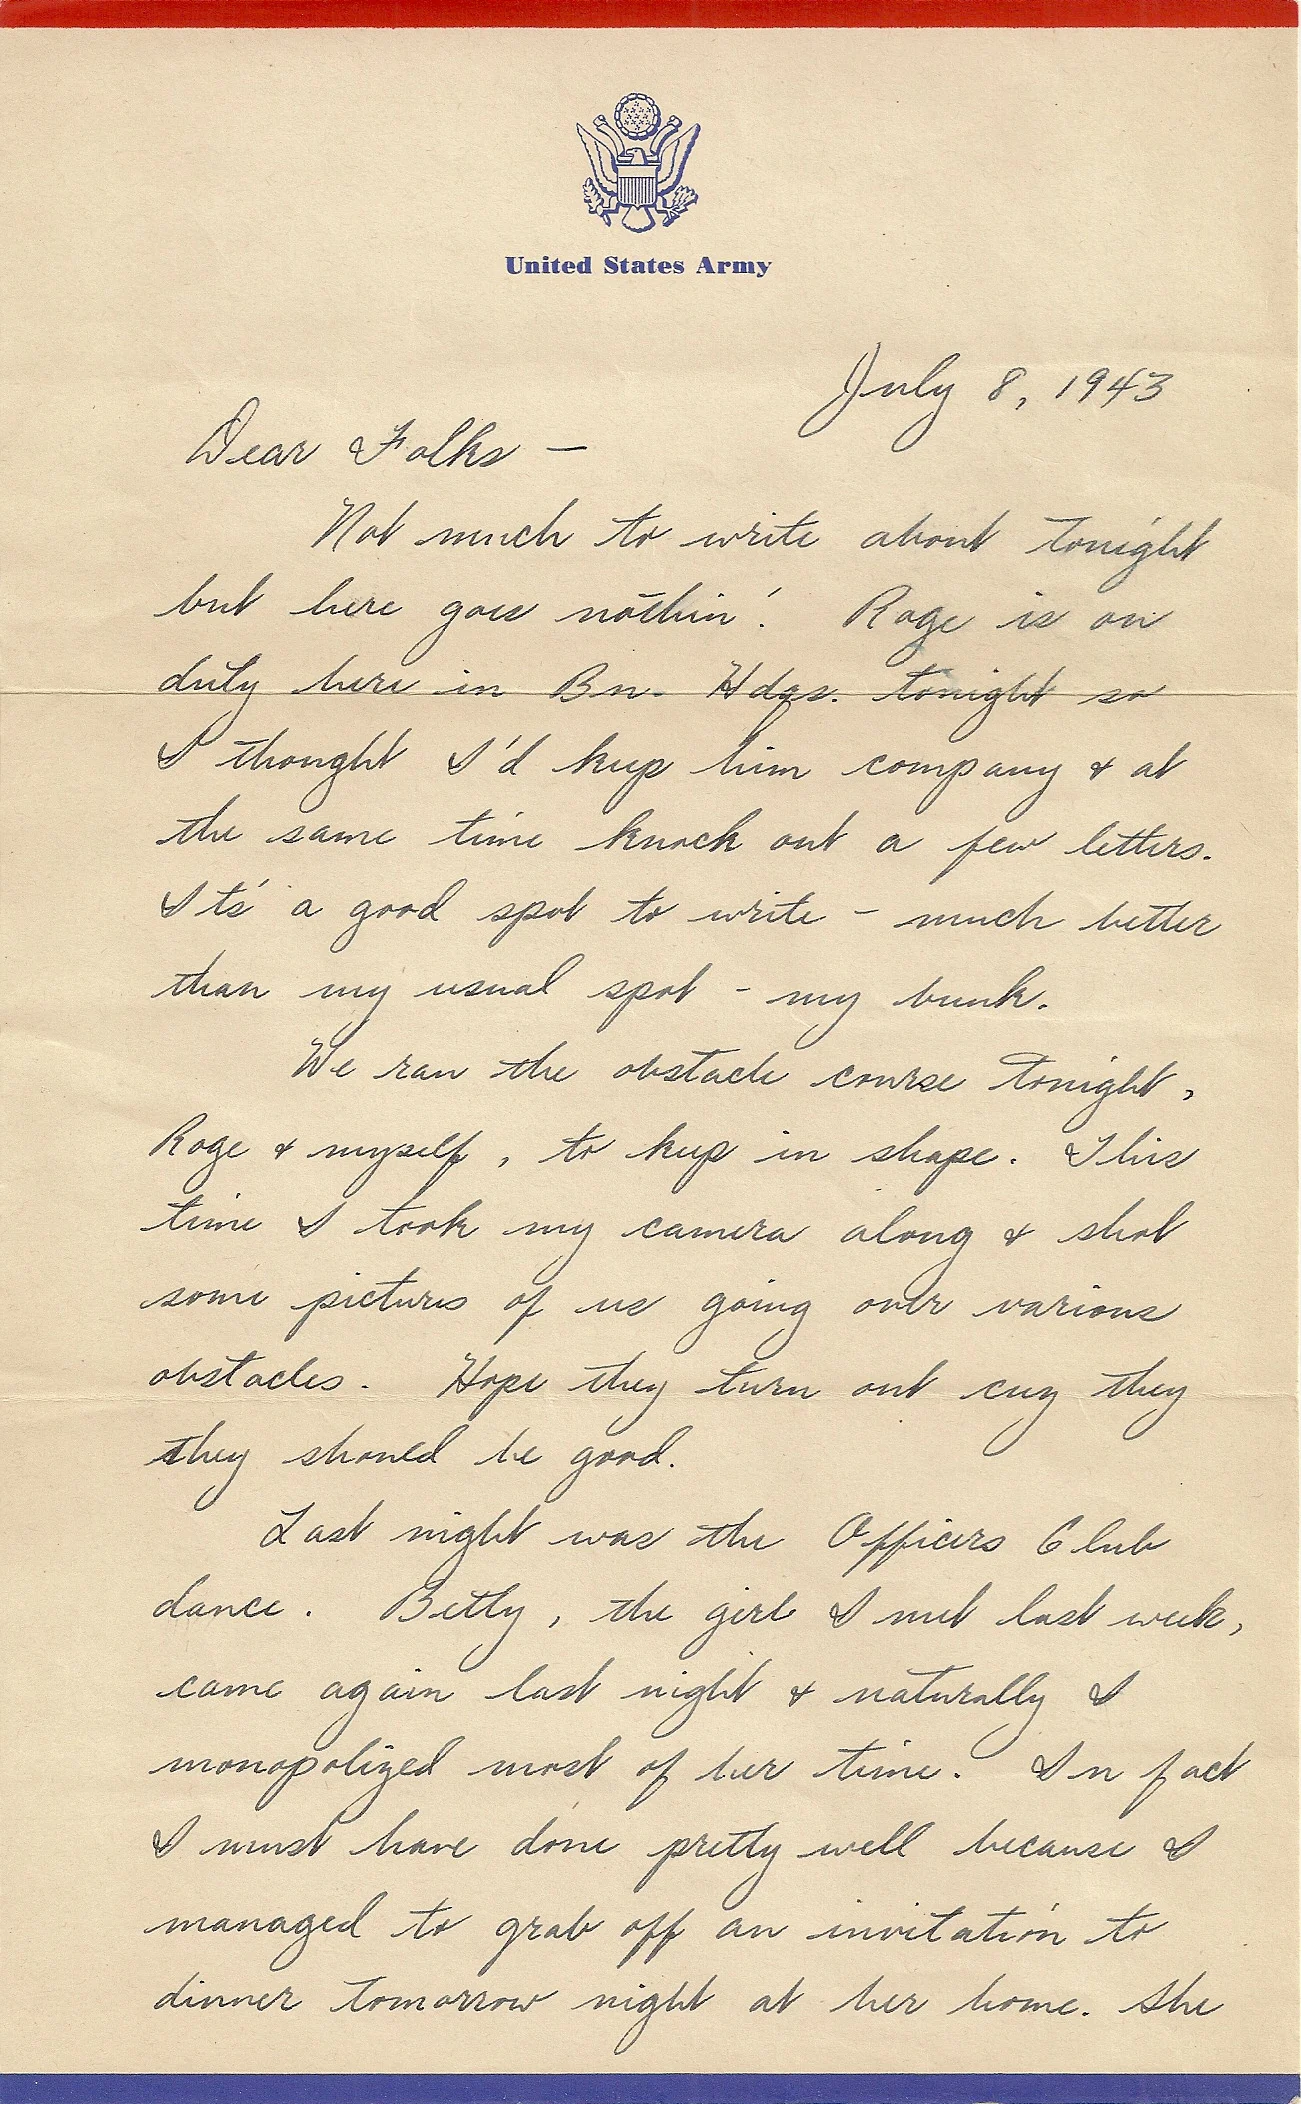 United States Army
July 8, 1943
Dear Folks —
Not much to write about tonight
but here goes nothin'. Roge is on
duty here in Bn. Hdqs. tonight so
I thought I'd keep him company & at
the same time knock out a few letters.
Its' a good spot to write – much better
than my usual spot - my bunk.
We ran the obstacle course tonight,
Roge & myself, to keep in shape. This
time I took my camera along & shot
some pictures of us going over various
obstacles. Hope they turn out cuz they
they should be good.
Last night was the Officers Club
dance. Betty, the girl I met last week,
came again last night & naturally I
monopolized most of her time. In fact
I must have done pretty well because I
managed to grab off an invitation to
dinner tomorrow night at her home. She